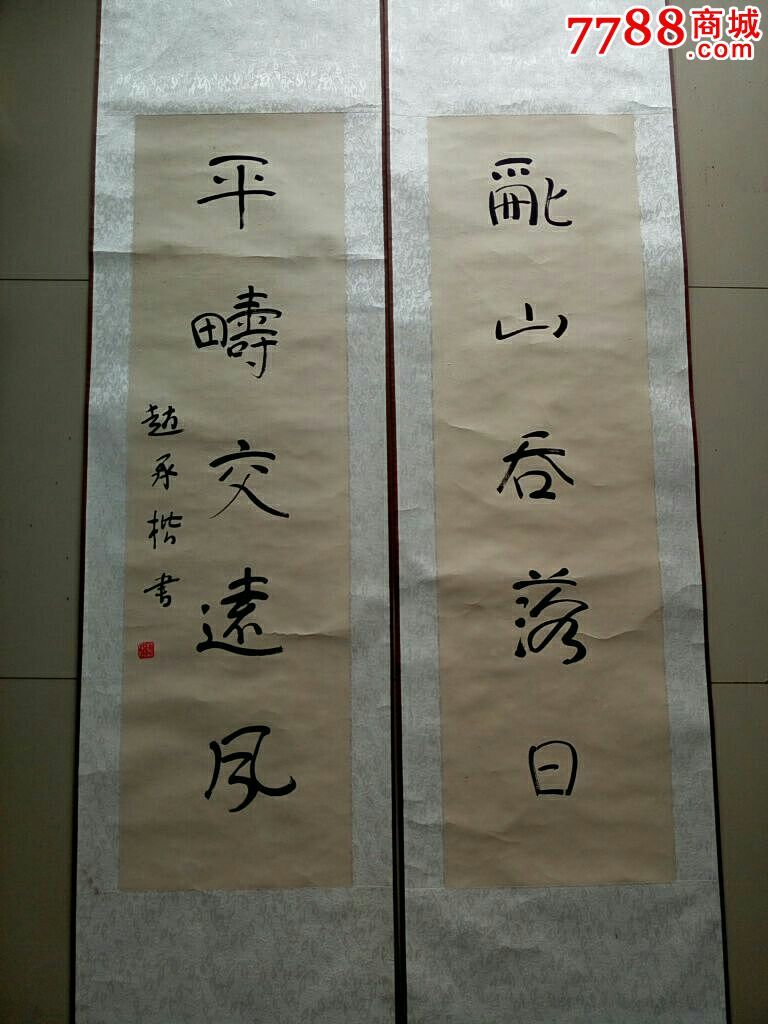 7788商城
.com
亂山吞落日
平疇交遠風
趙承楷書